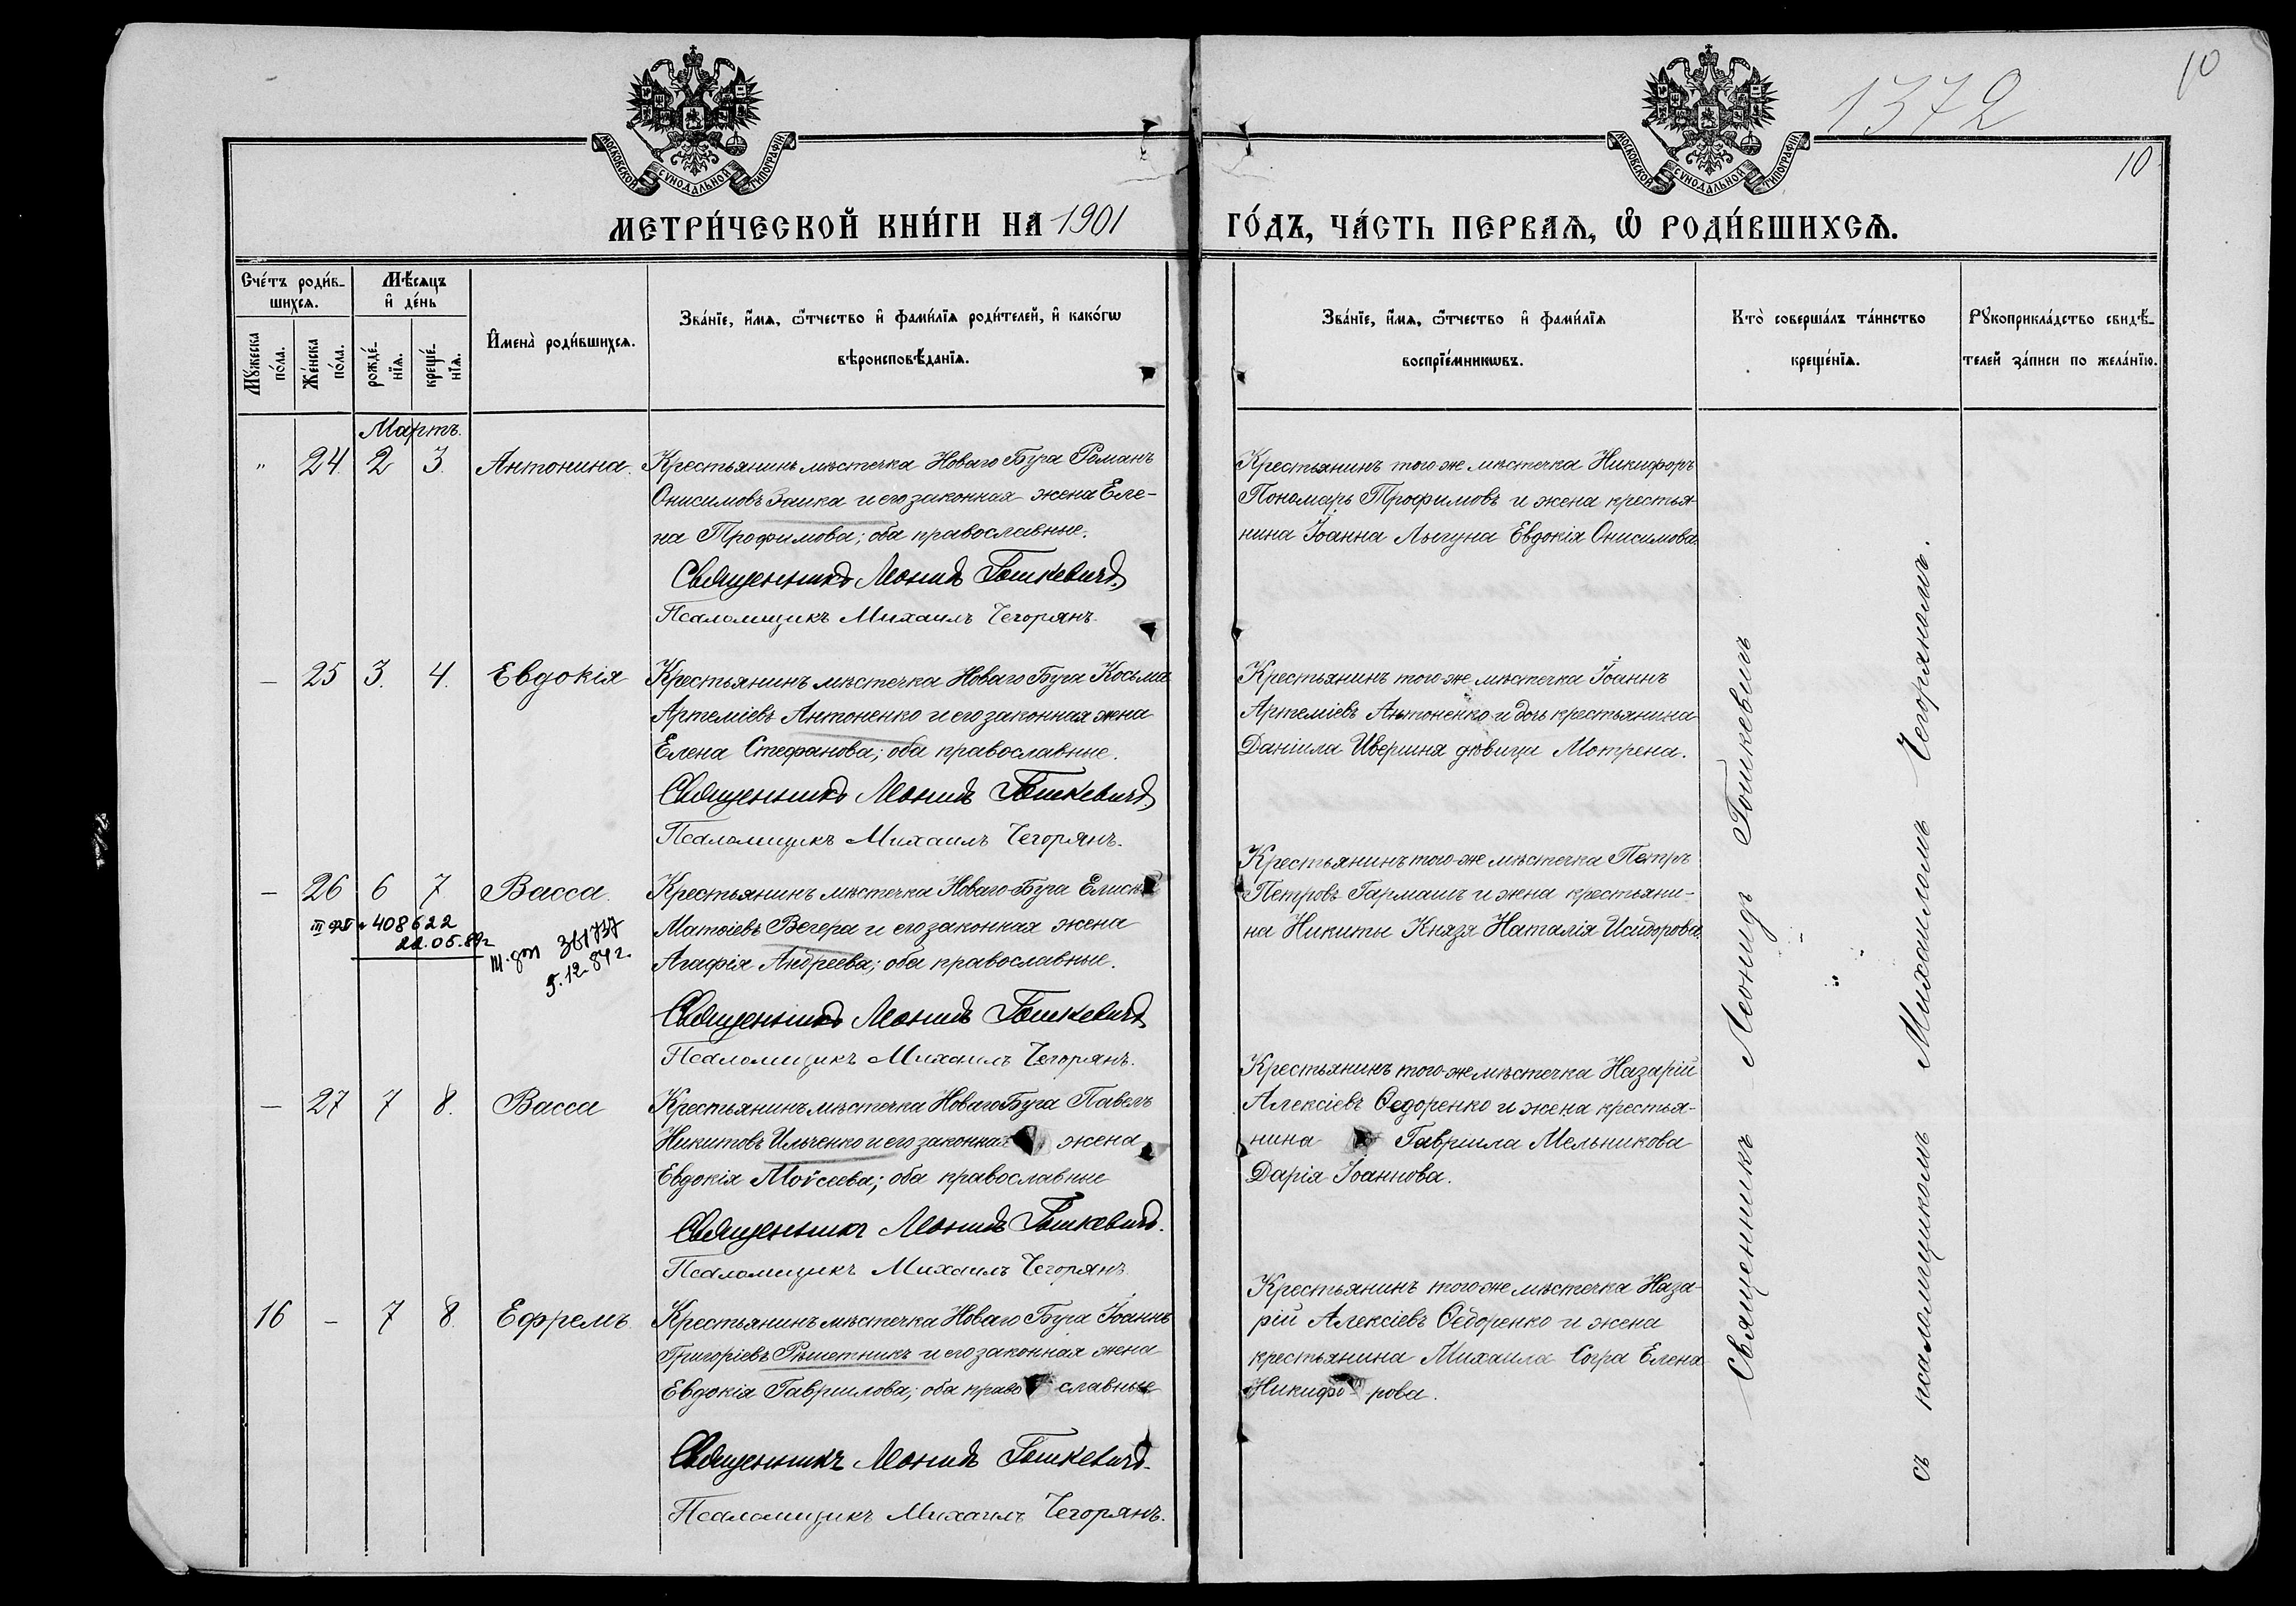 1372
10
10
МОСКОВСКОЙ СѴНОДАЛЬНОЙ ТИПОГРАФІИ.
МОСКОВСКОЙ СѴНОДАЛЬНОЙ ТИПОГРАФІИ.
МЕТРИ́ЧЕСКОЙ КНИ́ГИ НА 1901 ГО́ДЪ, ЧА́СТЬ ПЕРВАѦ, Ѽ РОДИ́ВШИХСѦ.
Сче́тъ роди́в-
шихсѧ.
Мꙋ́жеска по́ла.
Же́нска по́ла.
Мѣ́сѧцъ
и҆ де́нь
рожде́-
нїѧ.
креще́-
нїѧ.
И҆мена̀ роди́вшихсѧ.
Зва́нїе, и҆́мѧ, ѻ҆́тчество и҆ фами́лїѧ роди́телей, и҆ како́гѡ
вѣроисповѣ́данїѧ.
Зва́нїе, и҆́мѧ, ѻ҆́тчество и҆ фами́лїѧ
воспрїе́мникѡвъ.
Кто̀ соверша́лъ та́инство
креще́нїѧ.
Рꙋкоприкла́дство свидѣ́-
телей за́писи по жела́нїю.
Мартъ.
" 24. 2 3. Антонина.
Крестьянинъ мѣстечка Новаго Буга Романъ
Онисимовъ Заика и его законная жена Еле-
на Трофимова; оба православные.
Священникъ Леонидъ Гошкевичъ.
Псаломщикъ Михаилъ Чегорянъ.
Крестьянинъ того-же мѣстечка Никифоръ
Пономарь Трофимовъ и жена крестья-
нина Іоанна Лыгуна Евдокія Онисимова.
— 25 3. 4. Евдокія
Крестьянинъ мѣстечка Новаго Буга Косьма
Артеміевъ Антоненко и его законная жена
Елена Стефанова; оба православные.
Священникъ Леонидъ Гошкевичъ
Псаломщикъ Михаилъ Чегорянъ.
Крестьянинъ того-же мѣстечка Іоаннъ
Артеміевъ Антоненко и дочь крестьянина
Даніила Ивершня дѣвица Мотрена.
— 26 6 7 Васса.
408622
22.05.89г
361737
5.12.84г.
Крестьянинъ мѣстечка Новаго-Буга
Матѳіевъ Вегера и его законная жена
Агафія Андреева; оба православные.
Священникъ Леонидъ Гошкевичъ
Псаломщикъ Михаилъ Чегорянъ.
Крестьянинъ того-же мѣстечка Петръ
Петровъ Гармашъ и жена крестьяни-
на Никиты Князя Наталія Исидорова.
— 27 7 8. Васса
Крестьянинъ мѣстечка Новаго Буга Павелъ
Никитовъ Ильченко и его законная жена
Евдокія Моѵсеева; оба православные
Священникъ Леонидъ Гошкевичъ.
Псаломщикъ Михаилъ Чегорянъ
Крестьянинъ того-же мѣстечка Назарій
Алексіевъ Ѳедоренко и жена крестья-
нина Гавріила Мельникова
Дарія Іоаннова.
16 — 7 8. Ефремъ.
Крестьянинъ мѣстечка Новаго Буга Іоаннъ
Григоріевъ Рѣшетникъ и его законная жена
Евдокія Гавриилова; оба православные
Священникъ Леонидъ Гошкевичъ.
Псаломщикъ Михаилъ Чегорянъ.
Крестьянинъ того же мѣстечка Наза-
рій Алексіевъ Ѳедоренко и жена
крестьянина Михаила Согра Елена
Никифорова.
Священникъ Леонидъ Гошкевичъ
съ псаломщикомъ Михаиломъ Чегоряномъ.